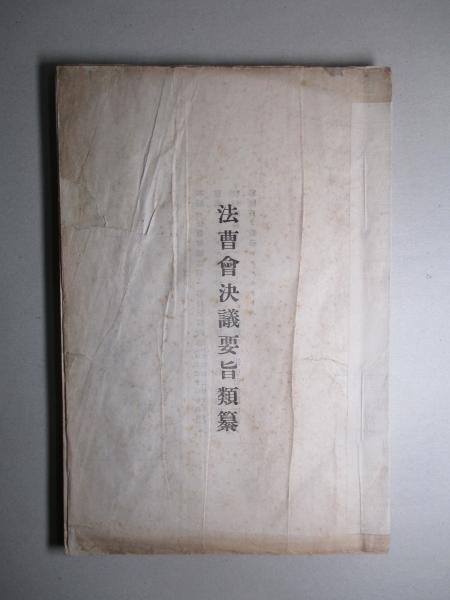 法曹會決議要旨類纂